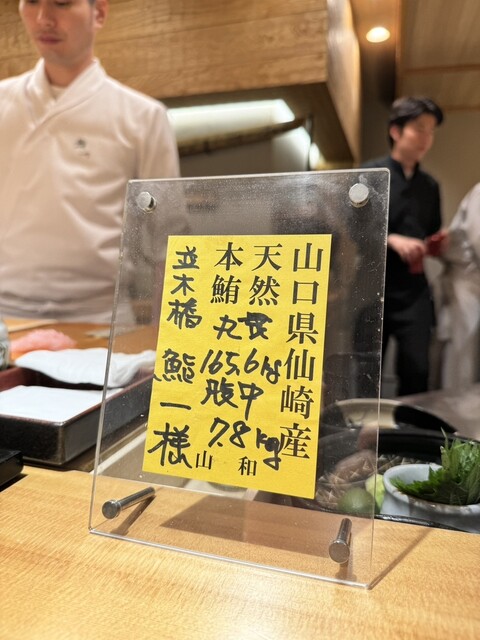 山口県仙崎産
天然
本鮪
丸 165.6kg
腹中 7.8kg
山和
並木橋
鮨一様